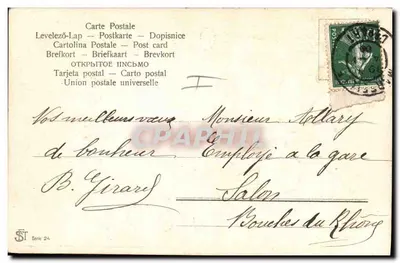 Carte Postale
Levelező-Lap — Postkarte — Dopisnice
Cartolina Postale — Post card
Brefkort — Briefkaart — Brevkort
ОТКРЫТОЕ ПИСЬМО
Tarjeta postal — Carto postal
Union postale universelle
I
Vos meilleurs vœux
de bonheur
B. Girard
Monsieur Attary
Employé à la gare
Salon
Bouches du Rhône
CPAPHIL
SST Serie 24